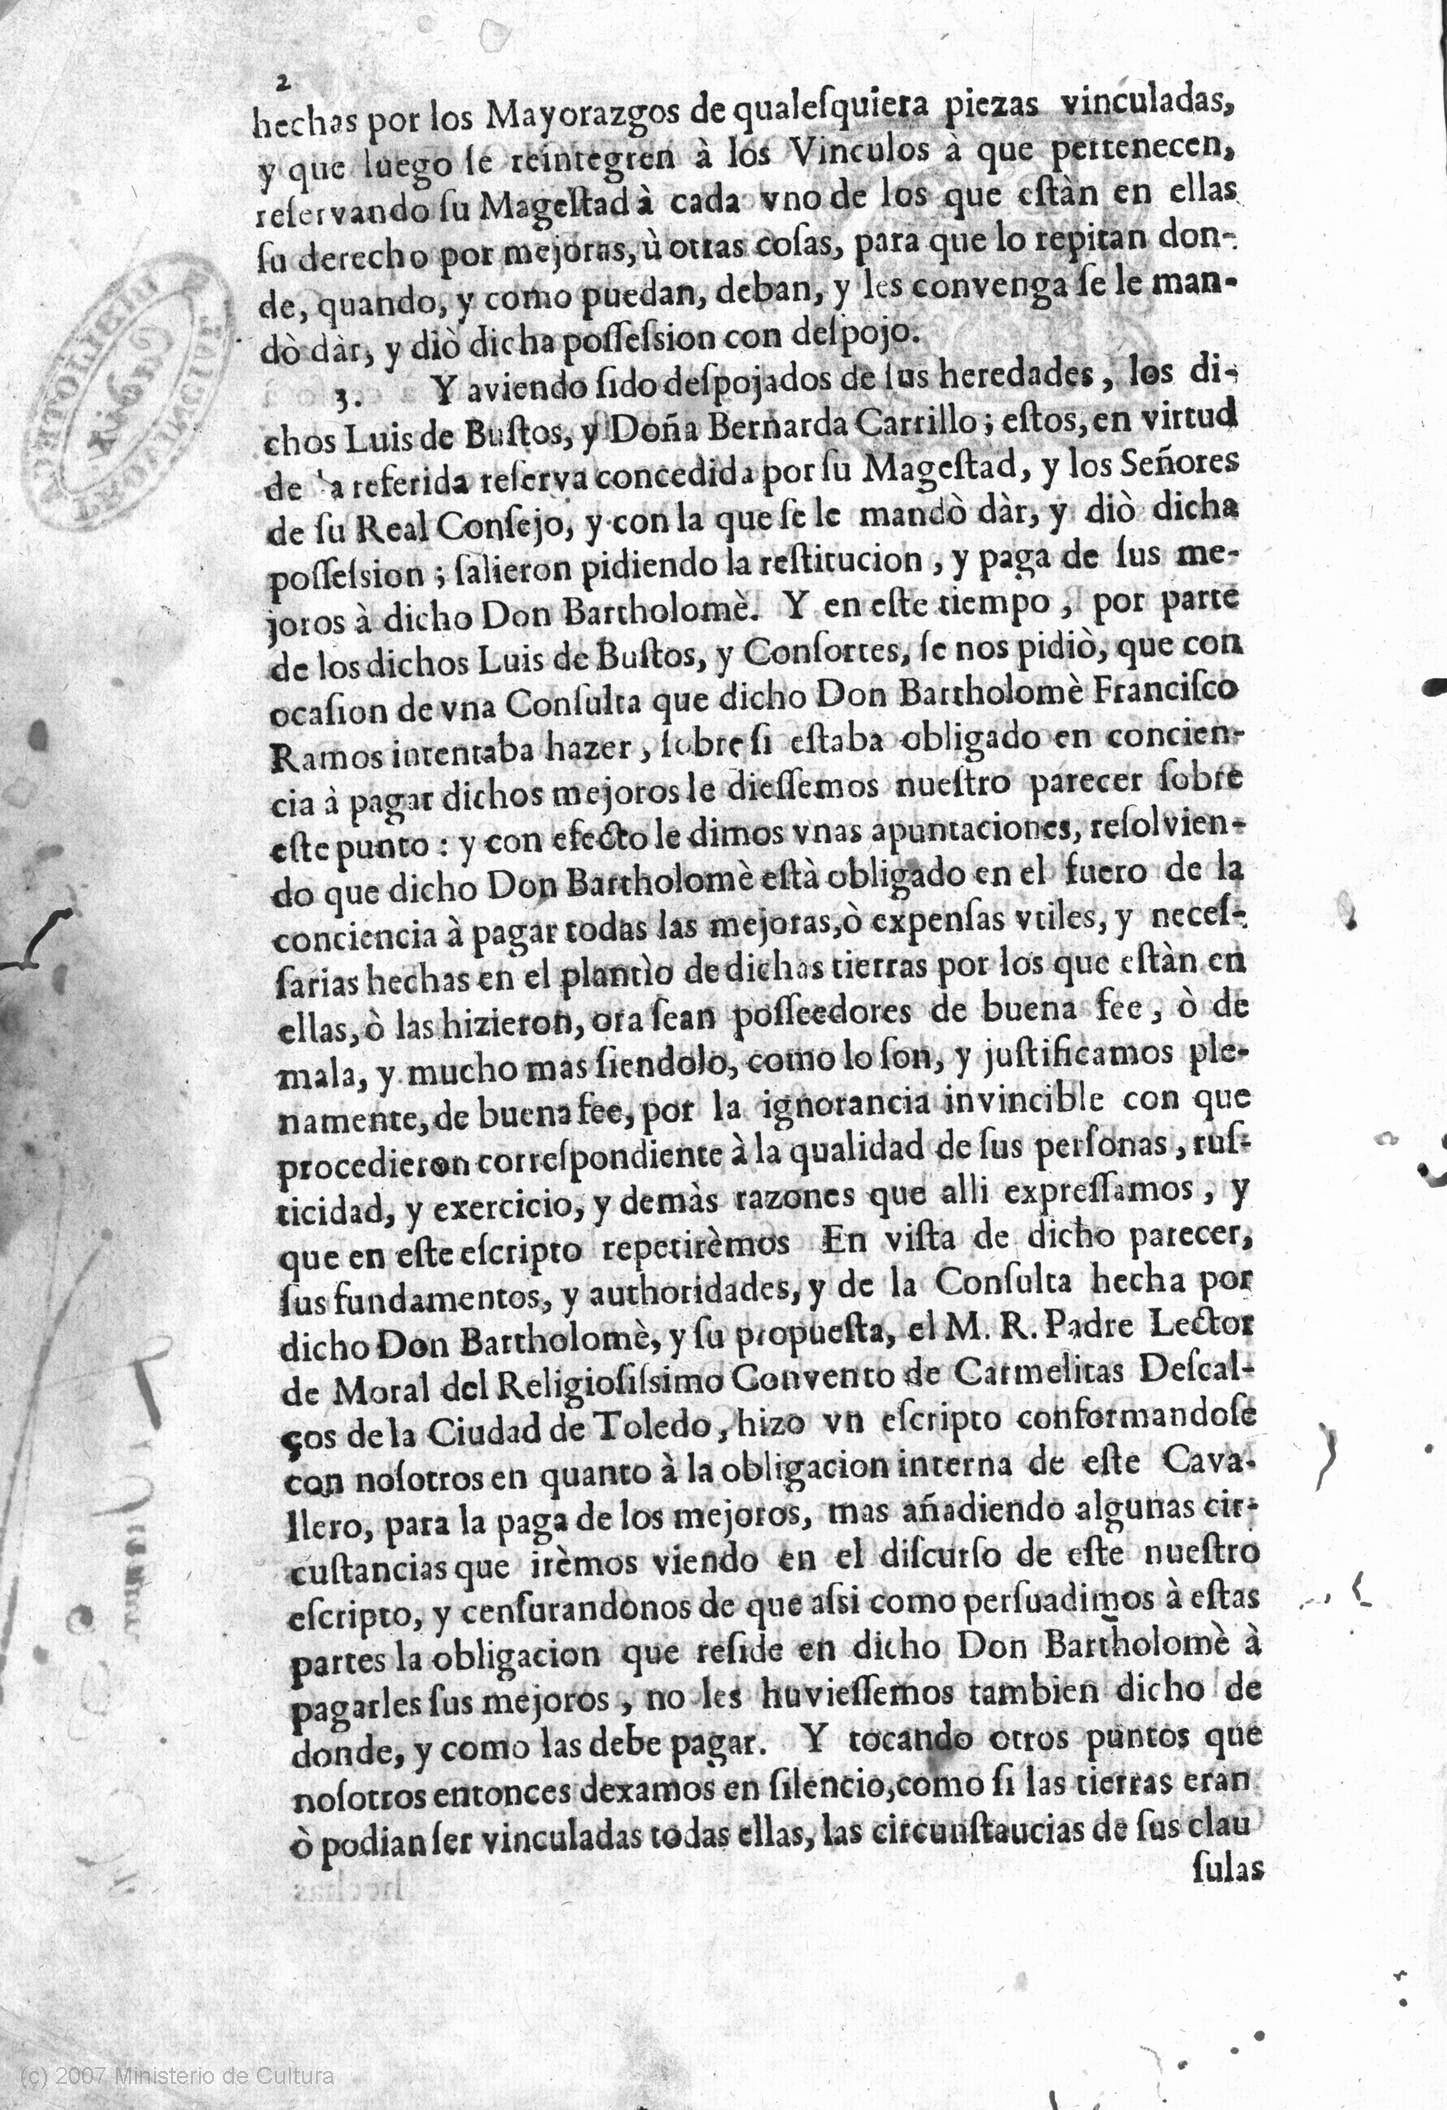 2
hechas por los Mayorazgos de qualeſquiera piezas vinculadas,
y que luego ſe reintegren à los Vinculos à que pertenecen,
reſervando ſu Mageſtad à cada vno de los que eſtàn en ellas
ſu derecho por mejoras, ù otras coſas, para que lo repitan don-
de, quando, y como puedan, deban, y les convenga ſe le man-
dò dàr, y diò dicha poſſeſsion con deſpojo.
3. Y aviendo ſido deſpojados de ſus heredades, los di-
chos Luis de Buſtos, y Doña Bernarda Carrillo; eſtos, en virtud
de la referida reſerva concedida por ſu Mageſtad, y los Señores
de ſu Real Conſejo, y con la que ſe le mandò dàr, y diò dicha
poſſeſsion; ſalieron pidiendo la reſtitucion, y paga de ſus me-
joros à dicho Don Bartholomè. Y en eſte tiempo, por parte
de los dichos Luis de Buſtos, y Conſortes, ſe nos pidiò, que con
ocaſion de vna Conſulta que dicho Don Bartholomè Franciſco
Ramos intentaba hazer, ſobre ſi eſtaba obligado en concien-
cia à pagar dichos mejoros le dieſſemos nueſtro parecer ſobre
eſte punto: y con efecto le dimos vnas apuntaciones, reſolvien-
do que dicho Don Bartholomè eſtà obligado en el fuero de la
conciencia à pagar todas las mejoras, ò expenſas vtiles, y neceſ-
ſarias hechas en el plantìo de dichas tierras por los que eſtàn en
ellas, ò las hizieron, ora ſean poſſeedores de buena fee, ò de
mala, y mucho mas ſiendolo, como lo ſon, y juſtificamos ple-
namente, de buena fee, por la ignorancia invincible con que
procedieron correſpondiente à la qualidad de ſus perſonas, ruſ-
ticidad, y exercicio, y demàs razones que alli expreſſamos, y
que en eſte eſcripto repetirèmos En viſta de dicho parecer,
ſus fundamentos, y authoridades, y de la Conſulta hecha por
dicho Don Bartholomè, y ſu propueſta, el M. R. Padre Lector
de Moral del Religioſiſsimo Convento de Carmelitas Deſcal-
ços de la Ciudad de Toledo, hizo vn eſcripto conformandoſe
con noſotros en quanto à la obligacion interna de eſte Cava-
llero, para la paga de los mejoros, mas añadiendo algunas cir-
cuſtancias que irèmos viendo en el diſcurſo de eſte nueſtro
eſcripto, y cenſurandonos de que aſsi como perſuadimos à eſtas
partes la obligacion que reſide en dicho Don Bartholomè à
pagarles ſus mejoros, no les huvieſſemos tambien dicho de
donde, y como las debe pagar. Y tocando otros puntos que
noſotros entonces dexamos en ſilencio, como ſi las tierras eran
ò podian ſer vinculadas todas ellas, las circunſtaucias de ſus clau
ſulas
(c) 2007 Ministerio de Cultura